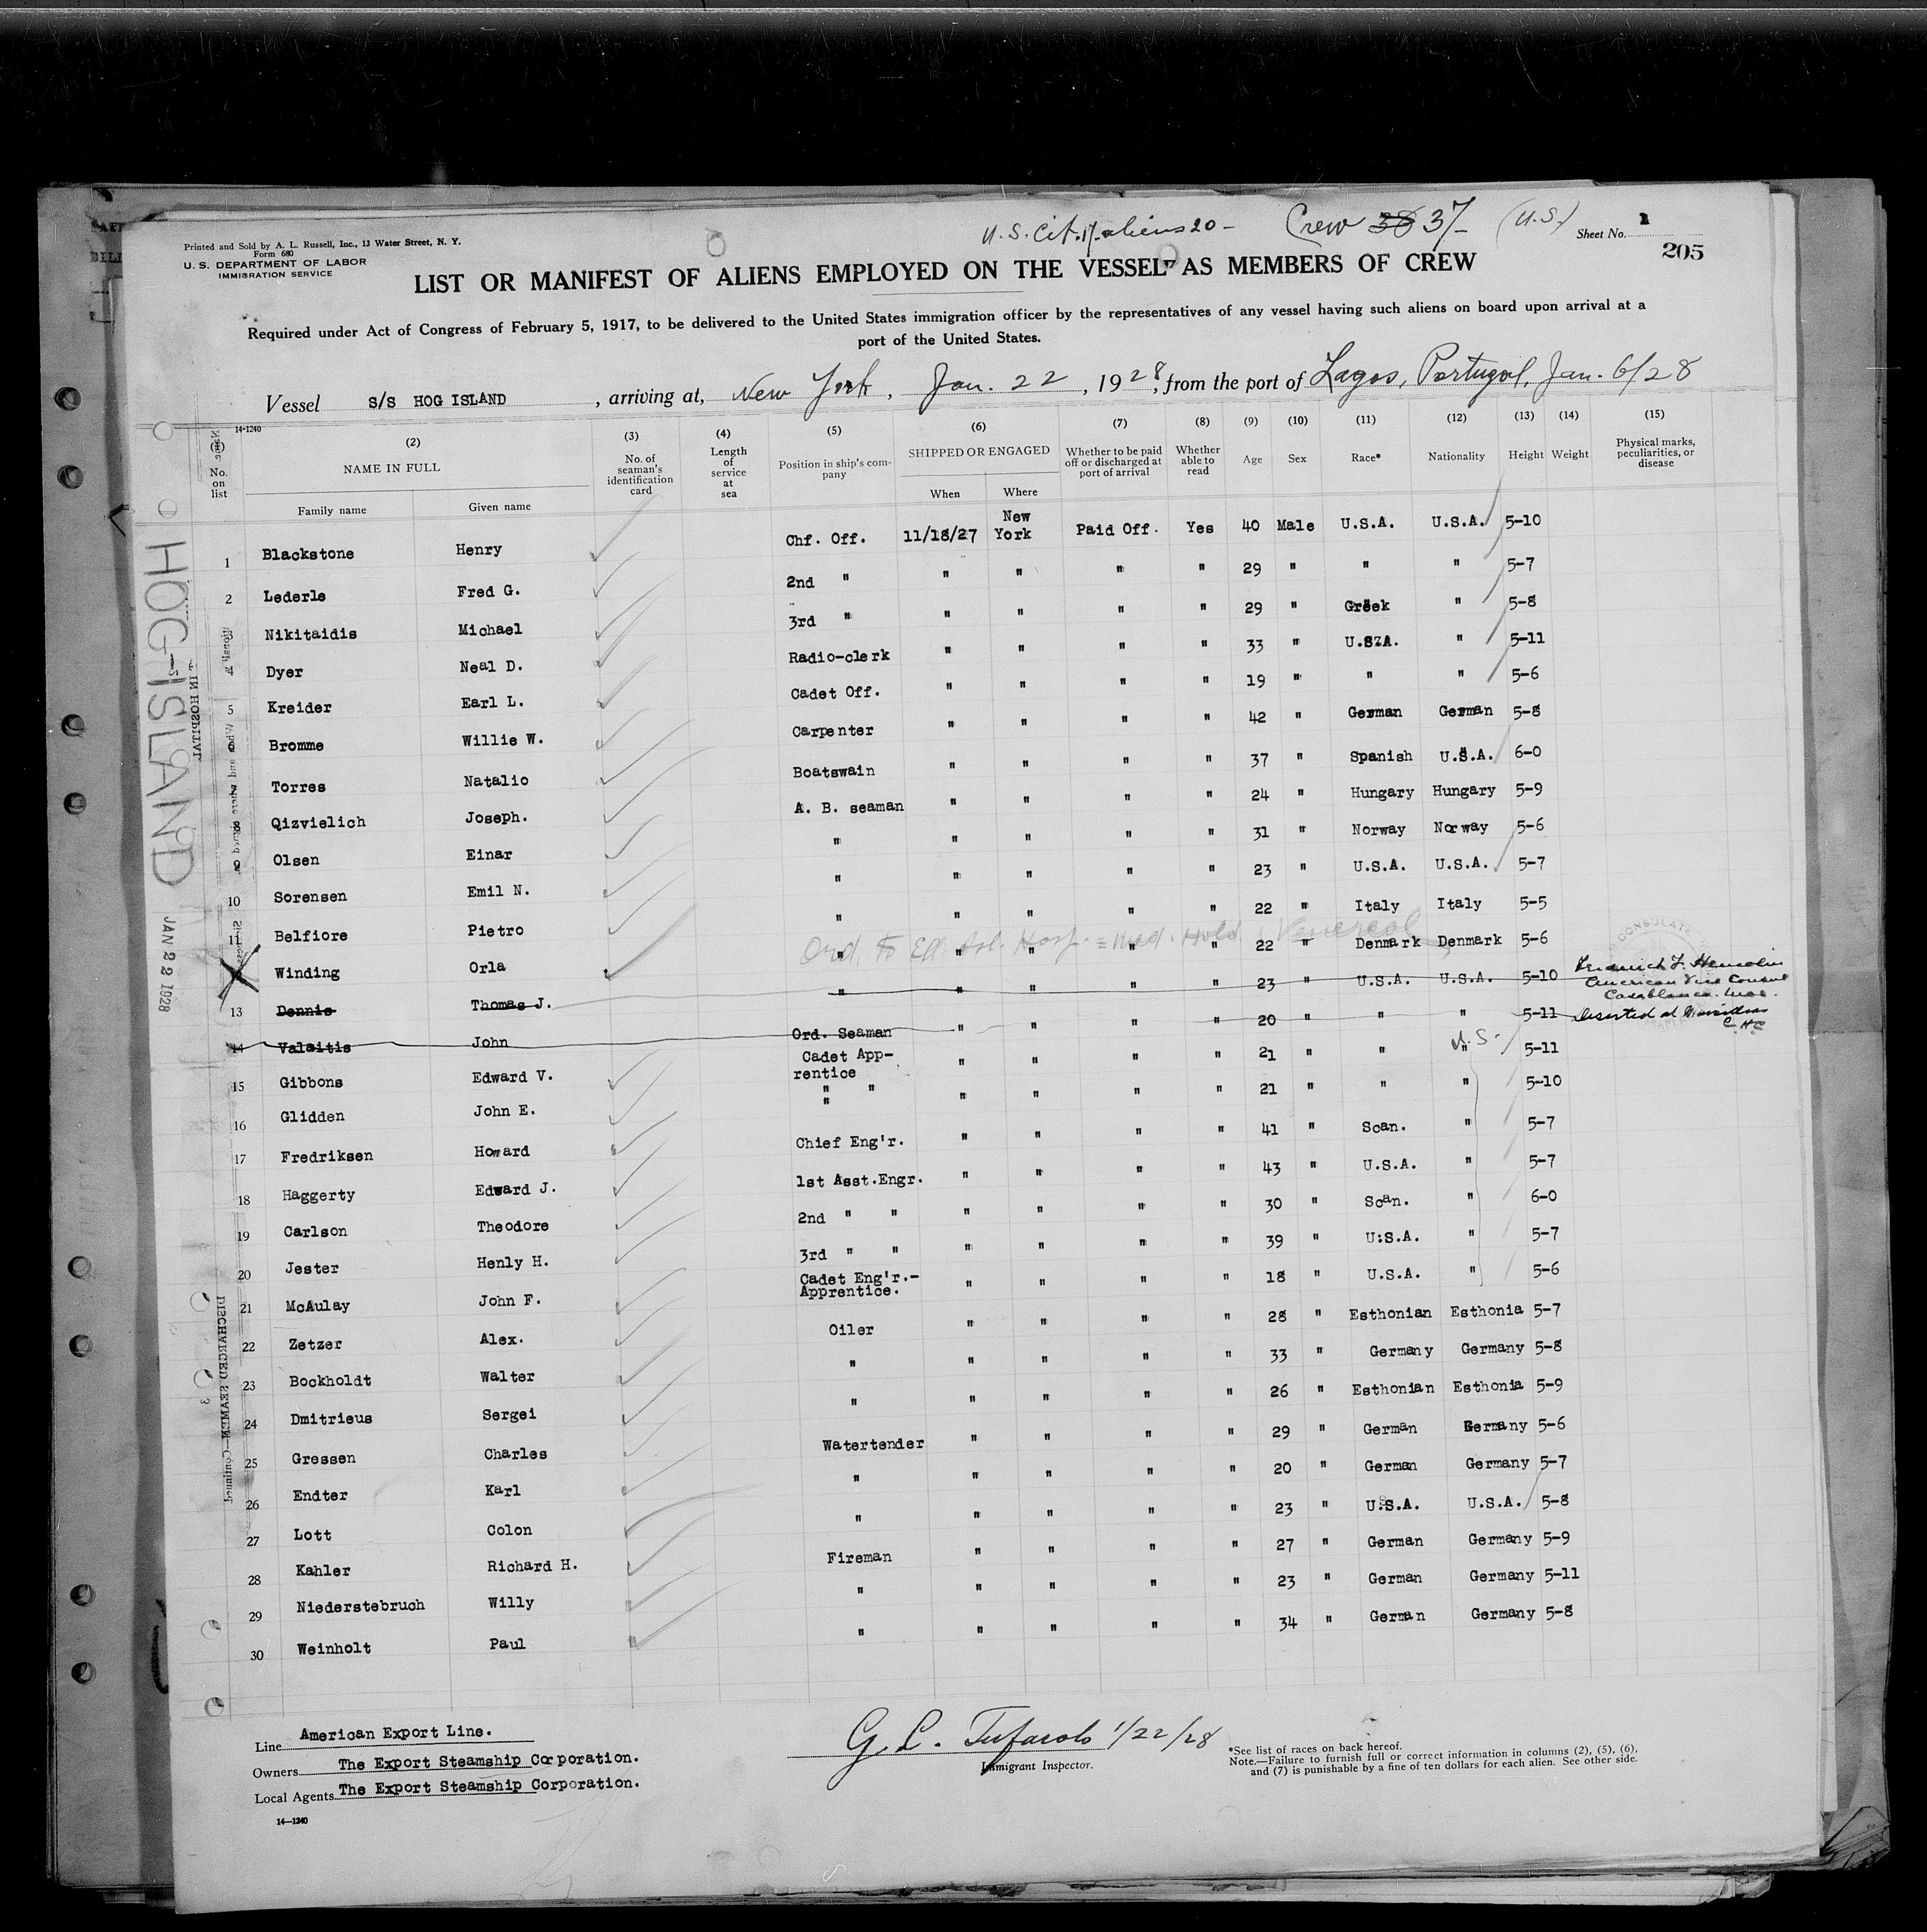 U.S. Cit. 17 aliens 20 - Crew 38 37 (U.S.)
Sheet No. 1
205
Printed and Sold by A. L. Russell, Inc., 13 Water Street, N. Y.
Form 680
U. S. DEPARTMENT OF LABOR
IMMIGRATION SERVICE
LIST OR MANIFEST OF ALIENS EMPLOYED ON THE VESSEL AS MEMBERS OF CREW
Required under Act of Congress of February 5, 1917, to be delivered to the United States immigration officer by the representatives of any vessel having such aliens on board upon arrival at a
port of the United States.
Vessel S/S HOG ISLAND, arriving at, New York, Jan. 22, 1928, from the port of Lagos, Portugal, Jan. 6/28
14-1240
(1) No. on list (2) NAME IN FULL Family name Given name (3) No. of seaman's identification card (4) Length of service at sea (5) Position in ship's company (6) SHIPPED OR ENGAGED When Where (7) Whether to be paid off or discharged at port of arrival (8) Whether able to read (9) Age (10) Sex (11) Race* (12) Nationality (13) Height (14) Weight (15) Physical marks, peculiarities, or disease
1 Blackstone Henry Chf. Off. 11/18/27 New York Paid Off. Yes 40 Male U.S.A. U.S.A. 5-10
2 Lederle Fred G. 2nd " " " " " 29 " " " 5-7
3 Nikitaidis Michael 3rd " " " " " 29 " Greek " 5-8
4 Dyer Neal D. Radio-clerk " " " " 33 " U.S.A. " 5-11
5 Kreider Earl L. Cadet Off. " " " " 19 " " " 5-6
6 Bromme Willie W. Carpenter " " " " 42 " German German 5-8
7 Torres Natalio Boatswain " " " " 37 " Spanish U.S.A. 6-0
8 Qizvielich Joseph. A. B. seaman " " " " 24 " Hungary Hungary 5-9
9 Olsen Einar " " " " " 31 " Norway Norway 5-6
10 Sorensen Emil N. " " " " " 23 " U.S.A. U.S.A. 5-7
11 Belfiore Pietro " " " " " 22 " Italy Italy 5-5
Ord. To Ell. Isl. Hosp. = Med. Hold. Venereal
Winding Orla " " " " " 22 " Denmark Denmark 5-6
13 Dennis Thomas J. " " " " " 23 " U.S.A. U.S.A. 5-10
American Vice Consul
Casablanca.
14 Valaitis John Ord. Seaman " " " " 20 " " " 5-11 Deserted at
15 Gibbons Edward V. Cadet Apprentice " " " " 21 " " U.S. " 5-11
16 Glidden John E. " " " " " " " 21 " " " 5-10
17 Fredriksen Howard Chief Eng'r. " " " " 41 " Scan. " 5-7
18 Haggerty Edward J. 1st Asst.Engr. " " " " 43 " U.S.A. " 5-7
19 Carlson Theodore 2nd " " " " " " 30 " Scan. " 6-0
20 Jester Henly H. 3rd " " " " " " 39 " U.S.A. " 5-7
21 McAulay John F. Cadet Eng'r.-Apprentice. " " " " 18 " U.S.A. " 5-6
22 Zetzer Alex. Oiler " " " " 28 " Esthonian Esthonia 5-7
23 Bockholdt Walter " " " " " 33 " Germany Germany 5-8
24 Dmitrieus Sergei " " " " " 26 " Esthonian Esthonia 5-9
25 Gressen Charles Watertender " " " " 29 " German Germany 5-6
26 Endter Karl " " " " " 20 " German Germany 5-7
27 Lott Colon " " " " " 23 " U.S.A. U.S.A. 5-8
28 Kahler Richard H. Fireman " " " " 27 " German Germany 5-9
29 Niederstebruch Willy " " " " " 23 " German Germany 5-11
30 Weinholt Paul " " " " " 34 " German Germany 5-8
HOG-ISLAND
JAN 22 1928
IN HOSPITAL
DISCHARGED SEAMEN—Continued
CONSULATE
Line American Export Line.
Owners The Export Steamship Corporation.
Local Agents The Export Steamship Corporation.
14—1240
G. L. 1/22/28
Immigrant Inspector.
*See list of races on back hereof.
Note.—Failure to furnish full or correct information in columns (2), (5), (6),
and (7) is punishable by a fine of ten dollars for each alien. See other side.